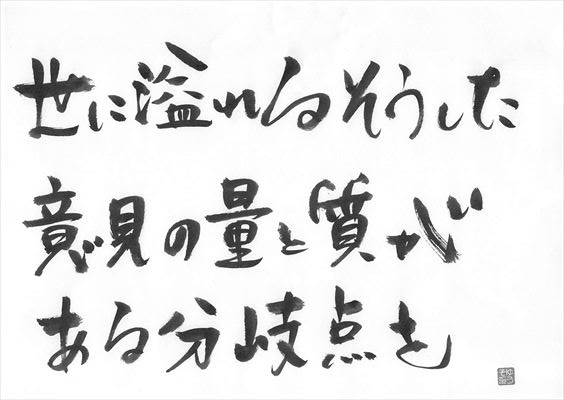 世に溢れるそうした
意見の量と質が
ある分岐点を